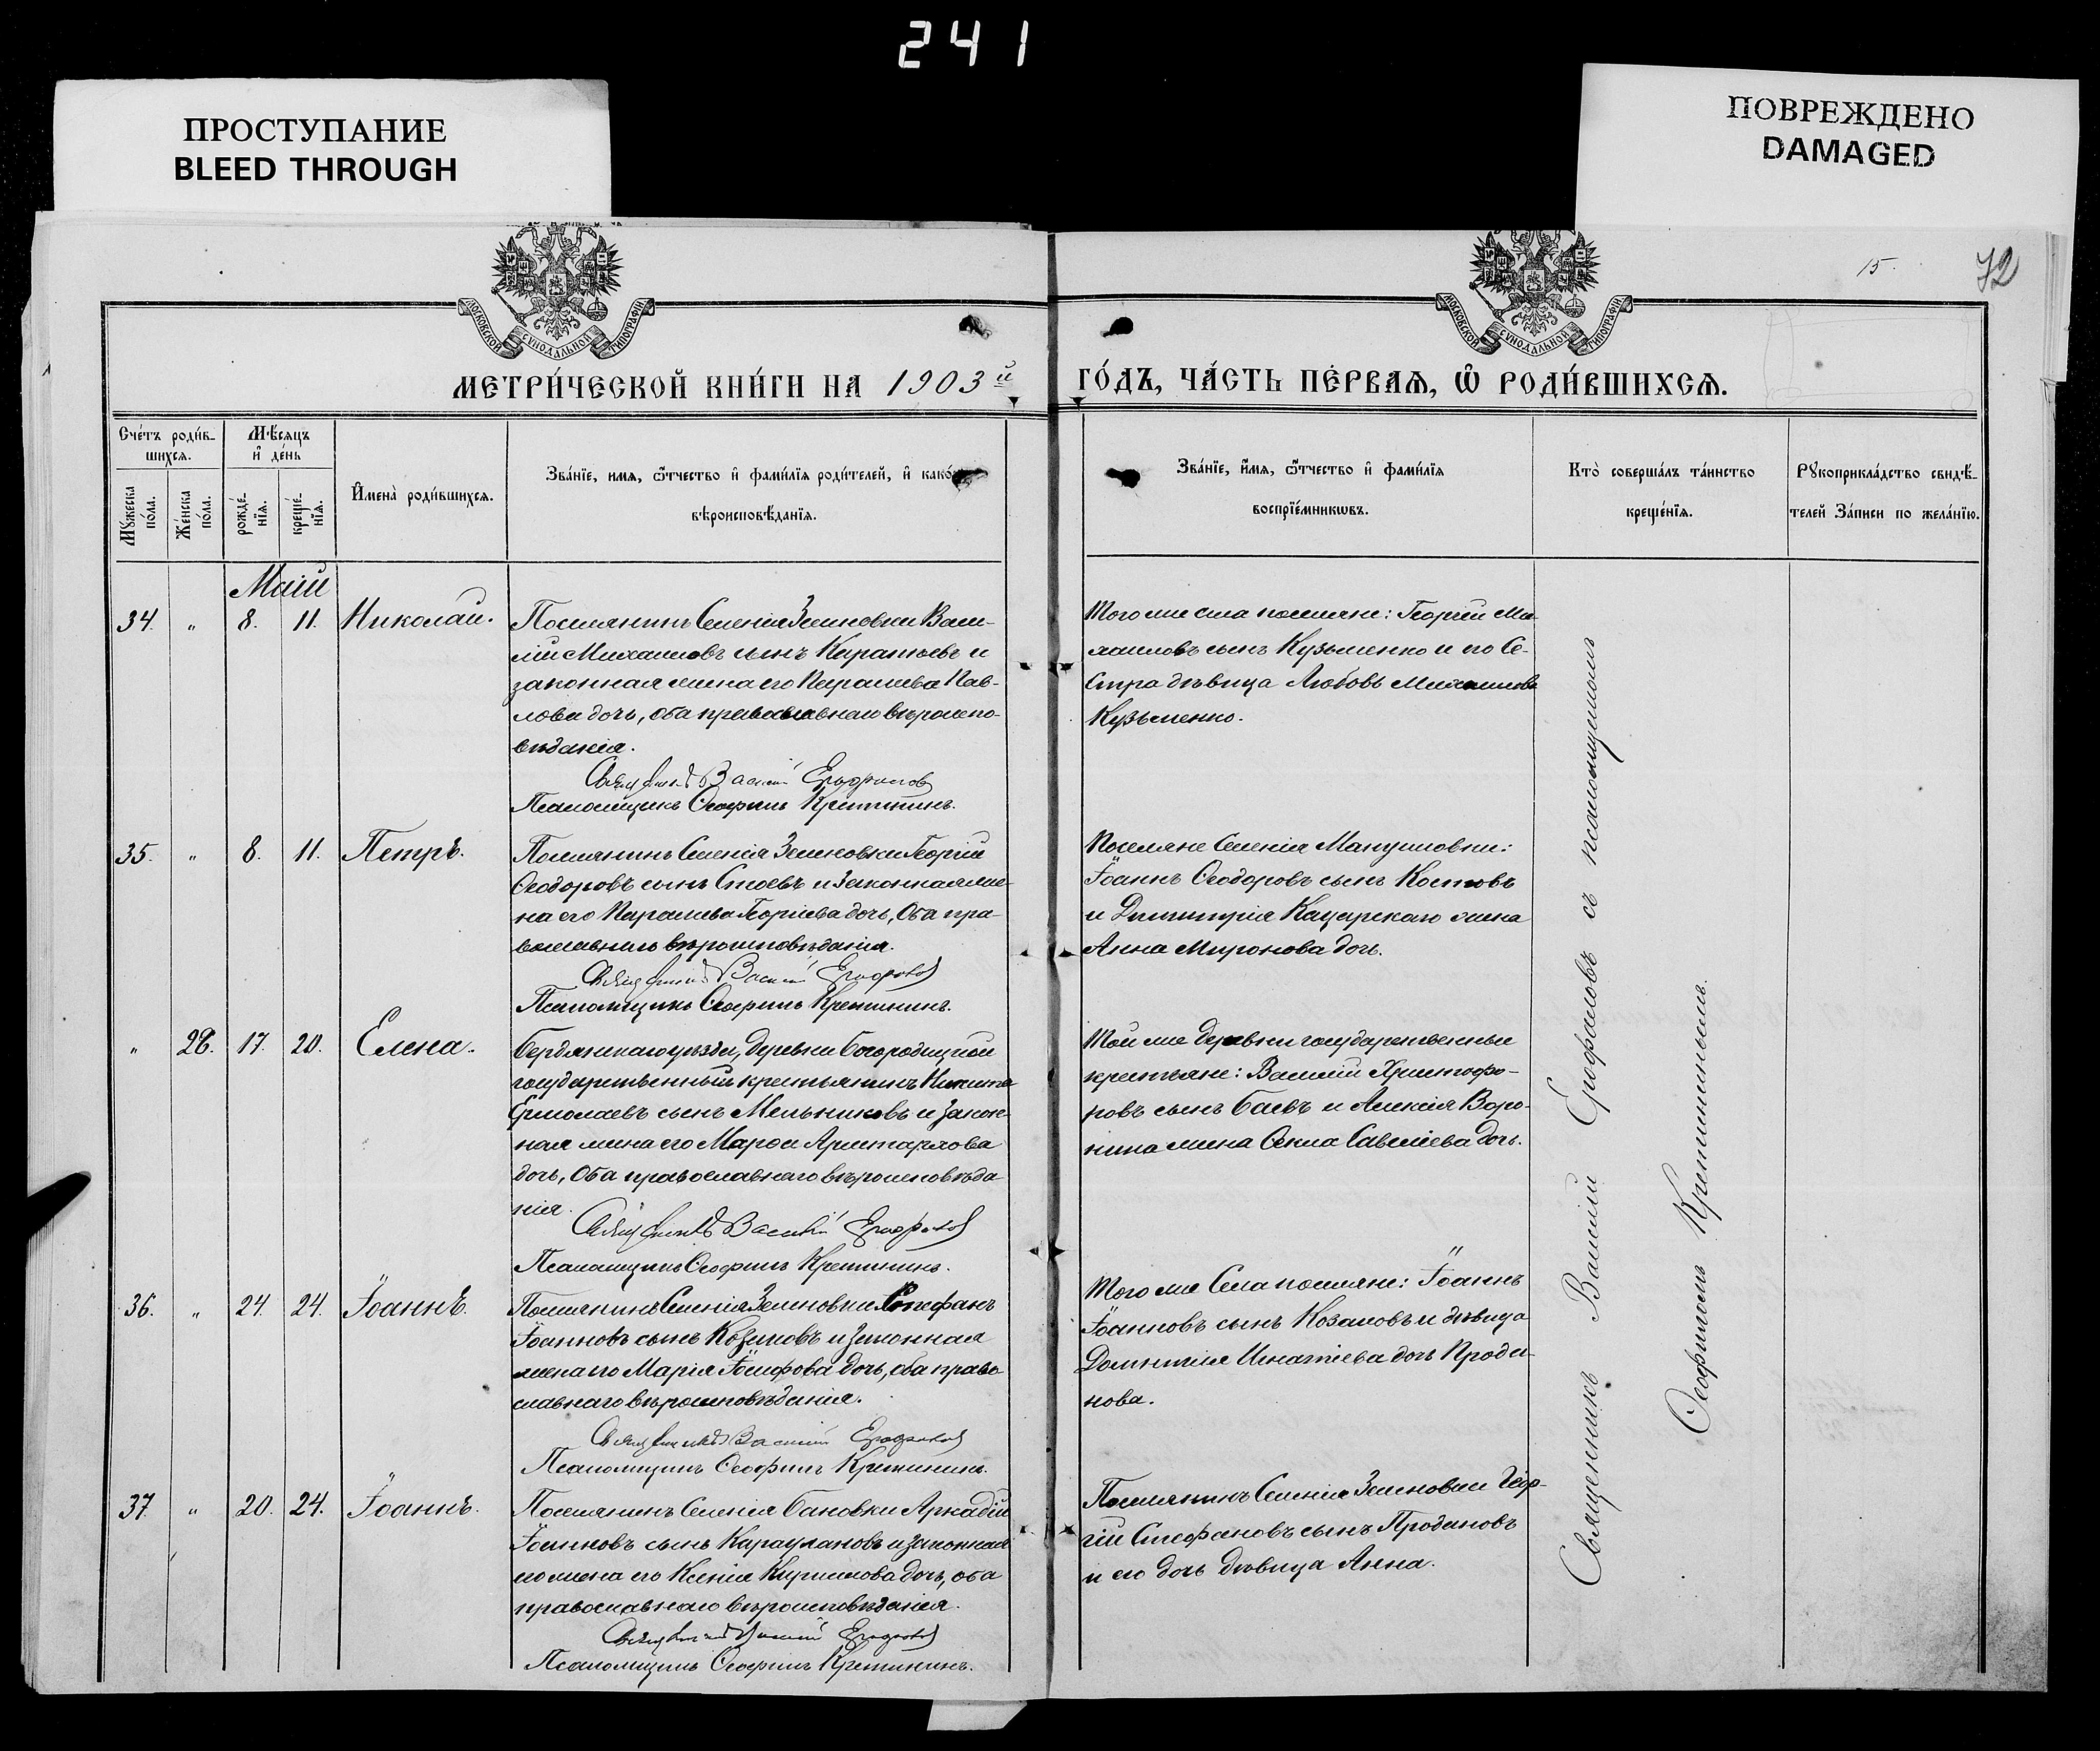 241
ПРОСТУПАНИЕ
BLEED THROUGH
ПОВРЕЖДЕНО
DAMAGED
15.
72
МОСКОВСКОЙ СѴНОДАЛЬНОЙ ТИПОГРАФІИ
МОСКОВСКОЙ СѴНОДАЛЬНОЙ ТИПОГРАФІИ
МЕТРИ́ЧЕСКОЙ КНИ́ГИ НА 1903й ГО́ДЪ, ЧА́СТЬ ПЕ́РВАЯ, Ѿ РОДИ́ВШИХСЯ.
Сче́тъ роди́в-
шихся.
Мѣ́сяцъ
и҆ де́нь
Мꙋ́жеска
по́ла.
Же́нска
по́ла.
рожде́-
нїѧ.
креще́-
нїѧ.
И҆мена̀ роди́вшихся.
Зва́нїе, имя, ѻ҆́тчество и҆ фами́лїѧ роди́телей, и҆ како́
вѣроисповѣ́данїѧ.
Зва́нїе, и҆́мя, ѻ҆́тчество и҆ фами́лїѧ
воспрїе́мникѡвъ.
Кто̀ соверша́лъ та́инство
креще́нїѧ.
Рꙋкоприкла́дство свидѣ́-
телей За́писи по жела́нїю.
Маій
34. " 8. 11. Николай.
Поселянинъ Селенія Зеленовки Васи-
лій Михаиловъ сынъ Каратьевъ и
законная жена его Параскева Пав-
лова дочь, оба православнаго вѣроиспо-
вѣданія.
Священникъ Василій Ерофаловъ
Псаломщикъ Ѳеофилъ Кретининъ.
Того же села поселяне: Георгій Ми-
хаиловъ сынъ Кузьменко и его Се-
стра дѣвица Любовь Михаилова
Кузьменко.
35. " 8. 11. Петръ.
Поселянинъ Селенія Зеленовки Георгій
Ѳеодоровъ сынъ Стоевъ и Законная же-
на его Параскева Георгіева дочь, Оба пра-
вославнаго вѣроисповѣданія.
Священникъ Василій Ерофаловъ
Псаломщикъ Ѳеофилъ Кретининъ.
Поселяне Селенія Мануиловки:
Іоаннъ Ѳеодоровъ сынъ Костовъ
и Димитрія Кацарскаго жена
Анна Миронова дочь.
" 28. 17. 20. Елена.
Бердянскаго уѣзда, деревни Богородицкой
государственный крестьянинъ Никита
Ермолаевъ сынъ Мельниковъ и Закон-
ная жена его Марѳа Аристархова
дочь, Оба православнаго вѣроисповѣда
нія.
Священникъ Василій Ерофаловъ
Псаломщикъ Ѳеофилъ Кретининъ.
Той же деревни государственные
крестьяне: Василій Христофо-
ровъ сынъ Баевъ и Алексія Воро-
нина жена Ѳекла Савеліева дочь.
36. " 24. 24. Іоаннъ.
Поселянинъ Селенія Зеленовки Стефанъ
Іоанновъ сынъ Козаковъ и законная
жена его Марія Іосифова дочь, оба право-
славнаго вѣроисповѣданія.
Священникъ Василій Ерофаловъ
Псаломщикъ Ѳеофилъ Кретининъ.
Того же Села поселяне: Іоаннъ
Іоанновъ сынъ Козаковъ и дѣвица
Домникія Игнатіева дочь Проди-
нова.
37. " 20. 24. Іоаннъ.
Поселянинъ Селенія Бановки Аркадій
Іоанновъ сынъ Карауланов и законная
его жена его Ксенія Кириллова дочь, оба
православнаго вѣроисповѣданія.
Священникъ Василій Ерофаловъ
Псаломщикъ Ѳеофилъ Кретининъ.
Поселянинъ Селенія Зеленовки Геор-
гій Стефановъ сынъ Продановъ
и его дочь дѣвица Анна.
Священникъ Василій Ерофаловъ съ псаломщикомъ
Ѳеофиломъ Кретининымъ.